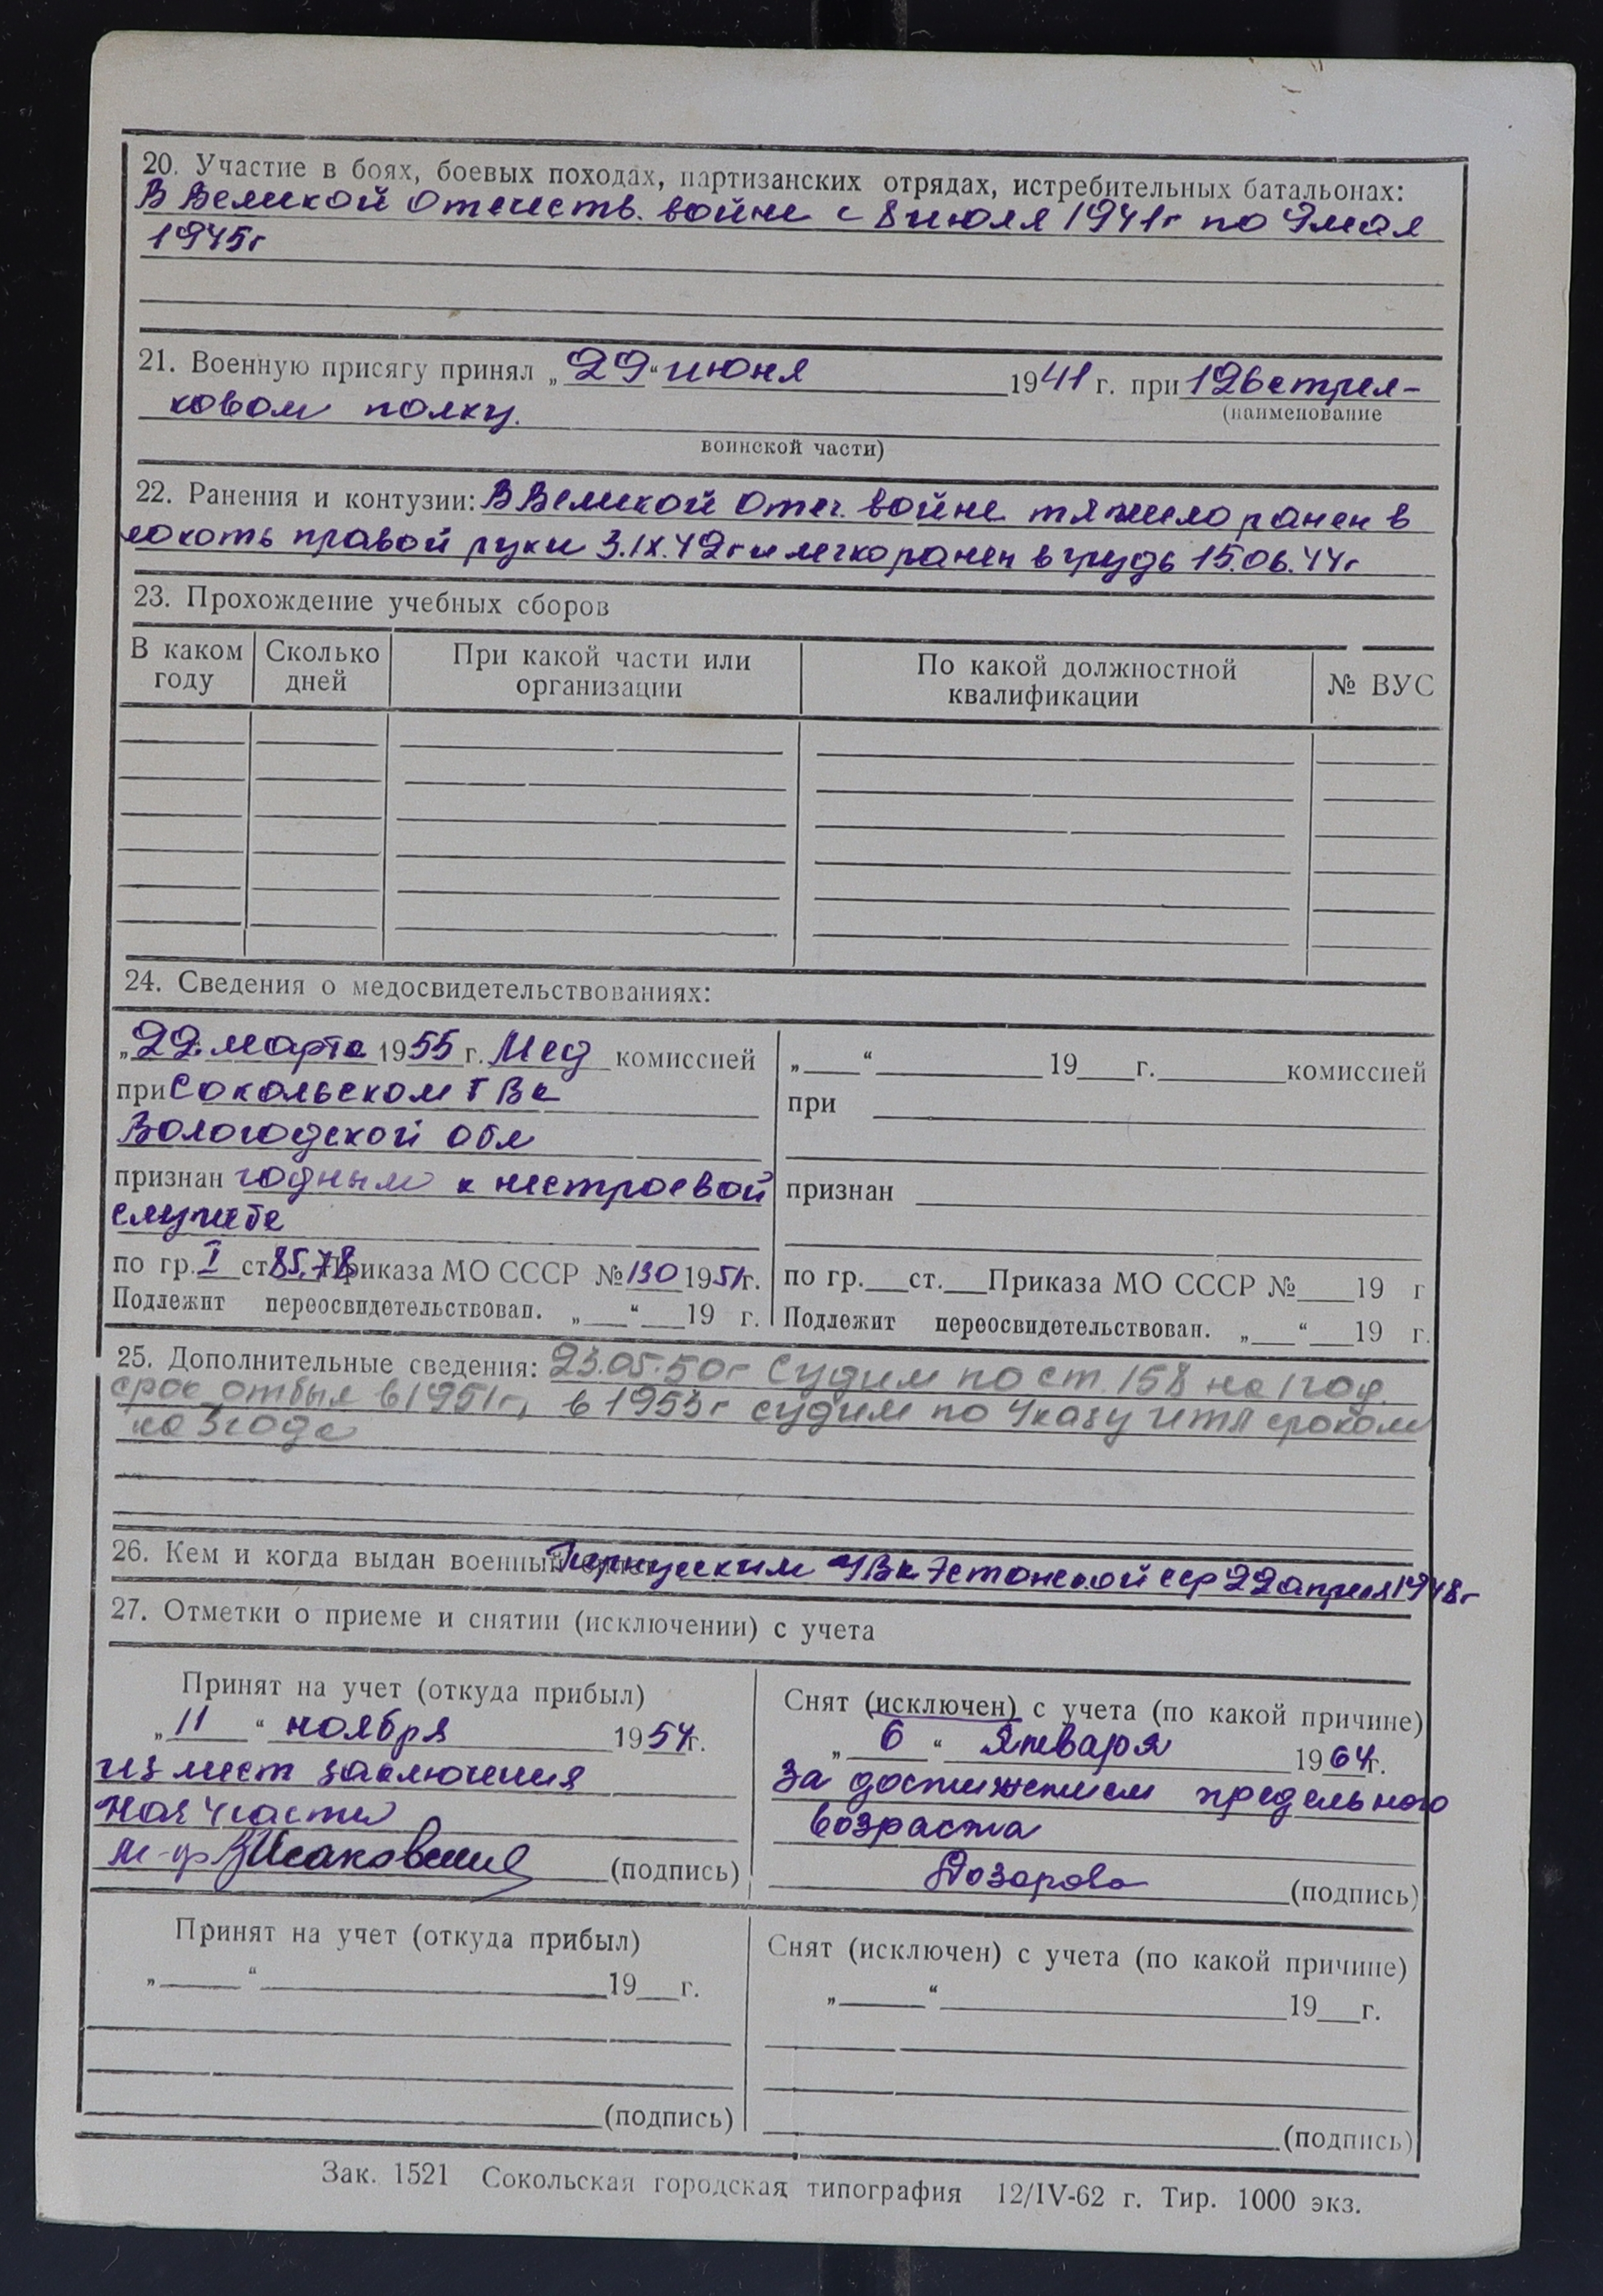 20. Участие в боях, боевых походах, партизанских отрядах, истребительных батальонах:
В Великой Отечеств. войне с 8 июля 1941г по 9 мая
1945г
21. Военную присягу принял „29“ июня 1941 г. при 126 стрел-
(наименование
ковом полку.
воинской части)
22. Ранения и контузии: В Великой Отеч. войне тяжело ранен в
локоть правой руки 3.IX.42г и легко ранен в грудь 15.06.44г
23. Прохождение учебных сборов
В каком году Сколько дней При какой части или организации По какой должностной квалификации № ВУС
24. Сведения о медосвидетельствованиях:
„22“ марта 1955 г. Мед комиссией
при Сокольском ГВК
Вологодской обл
признан годным к нестроевой
службе
по гр. I ст. 85,78 Приказа МО СССР № 130 1951г.
Подлежит переосвидетельствован. „ “ 19 г.
„ “ 19 г. комиссией
при
признан
по гр. ст. Приказа МО СССР № 19 г
Подлежит переосвидетельствован. „ “ 19 г.
25. Дополнительные сведения: 23.05.50г Судим по ст. 158 на 1 год
срок отбыл в 1951г, в 1953г судим по Указу ИТЛ сроком
на 3 года
26. Кем и когда выдан военный УВК Эстонской сср 22 апреля 1948г
27. Отметки о приеме и снятии (исключении) с учета
Принят на учет (откуда прибыл)
„11“ ноября 1954г.
из мест заключения
Нач части
м-р (подпись)
Снят (исключен) с учета (по какой причине)
„6“ Января 1964г.
За достижением предельного
возраста
(подпись)
Принят на учет (откуда прибыл)
„ “ 19 г.
(подпись)
Снят (исключен) с учета (по какой причине)
„ “ 19 г.
(подпись)
Зак. 1521 Сокольская городская типография 12/IV-62 г. Тир. 1000 экз.